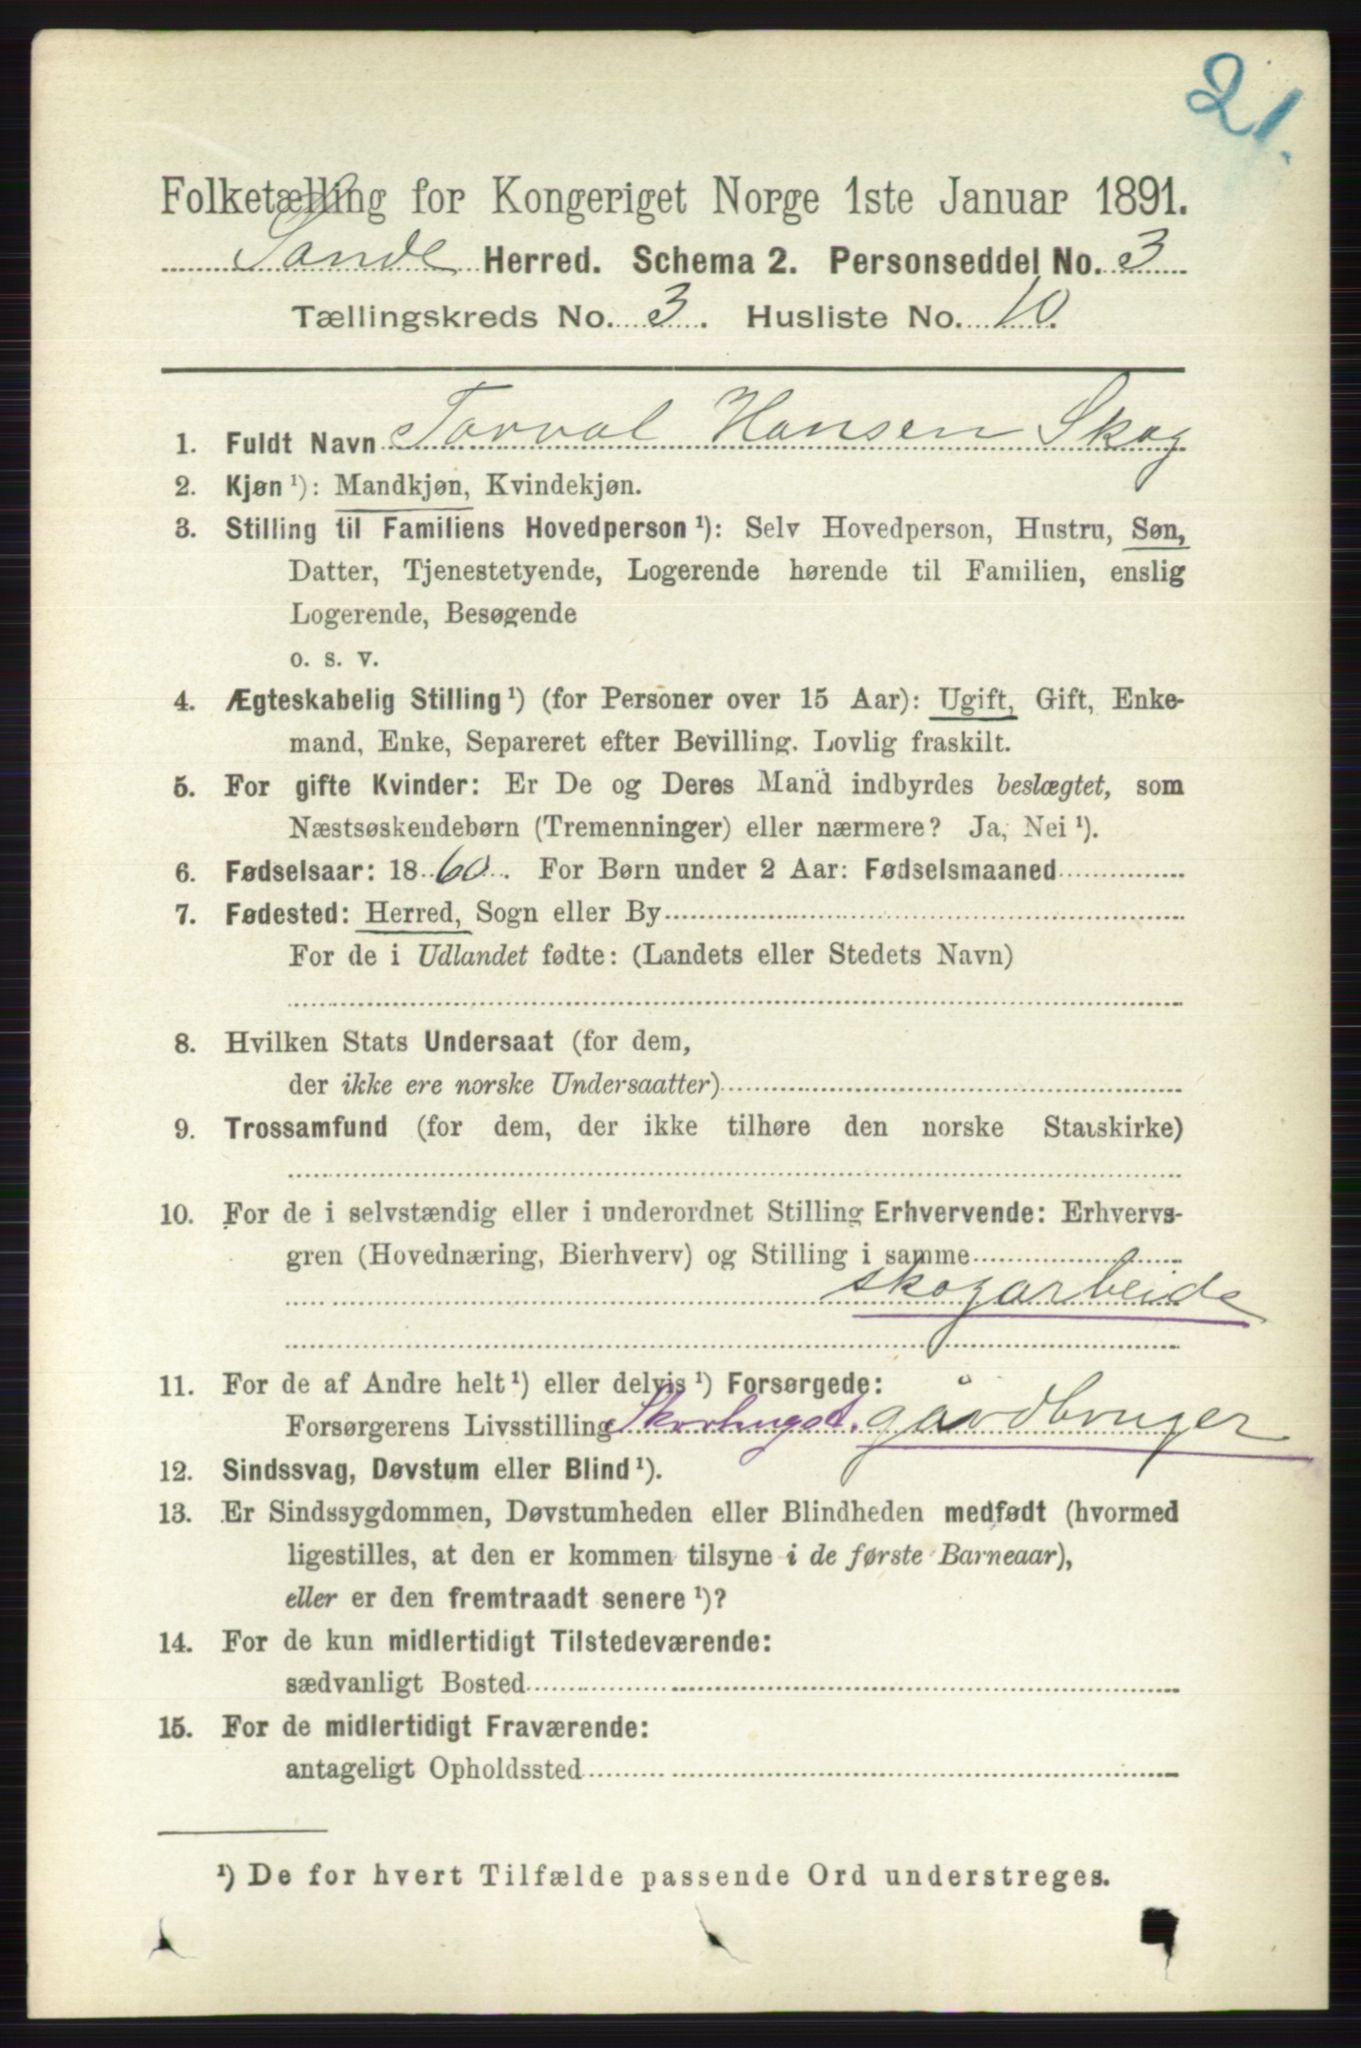 21.
Folketælling for Kongeriget Norge 1ste Januar 1891.
Sande Herred. Schema 2. Personseddel No. 3
Tællingskreds No. 3. Husliste No. 10.
1. Fuldt Navn Torval Hansen Skog
2. Kjøn ¹): Mandkjøn, Kvindekjøn.
3. Stilling til Familiens Hovedperson ¹): Selv Hovedperson, Hustru, Søn,
Datter, Tjenestetyende, Logerende hørende til Familien, enslig
Logerende, Besøgende
o. s. v.
4. Ægteskabelig Stilling ¹) (for Personer over 15 Aar): Ugift, Gift, Enke-
mand, Enke, Separeret efter Bevilling. Lovlig fraskilt.
5. For gifte Kvinder: Er De og Deres Mand indbyrdes beslægtet, som
Næstsøskendebørn (Tremenninger) eller nærmere? Ja, Nei ¹).
6. Fødselsaar: 1860. For Børn under 2 Aar: Fødselsmaaned
7. Fødested: Herred, Sogn eller By
For de i Udlandet fødte: (Landets eller Stedets Navn)
8. Hvilken Stats Undersaat (for dem,
der ikke ere norske Undersaatter)
9. Trossamfund (for dem, der ikke tilhøre den norske Statskirke)
10. For de i selvstændig eller i underordnet Stilling Erhvervende: Erhvervs-
gren (Hovednæring, Bierhverv) og Stilling i samme
skogarbeide
11. For de af Andre helt ¹) eller delvis ¹) Forsørgede:
Forsørgerens Livsstilling gårdbruger
12. Sindssvag, Døvstum eller Blind ¹).
13. Er Sindssygdommen, Døvstumheden eller Blindheden medfødt (hvormed
ligestilles, at den er kommen tilsyne i de første Barneaar),
eller er den fremtraadt senere ¹)?
14. For de kun midlertidigt Tilstedeværende:
sædvanligt Bosted
15. For de midlertidigt Fraværende:
antageligt Opholdssted
¹) De for hvert Tilfælde passende Ord understreges.